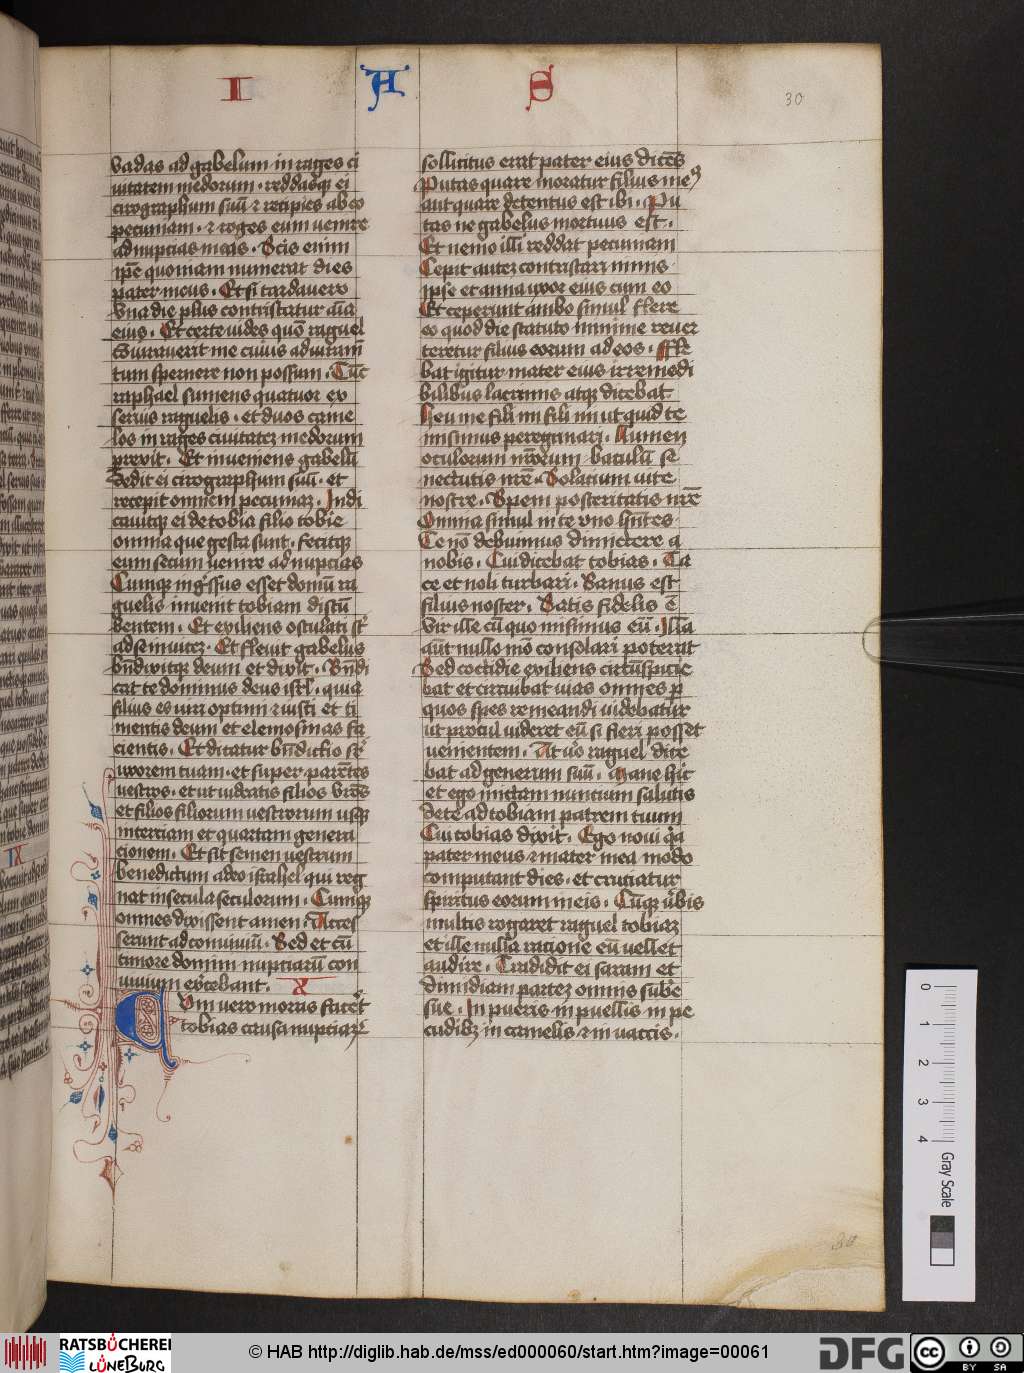 I H S
30
vadas ad gabelum in rages ci
uitatem medorum · reddasqꝫ ei
cirographum suū ⁊ recipies ab eo
pecuniam · ⁊ roges eum uenire
ad nupcias meas · Scis enim
ip̄e quoniam numerat dies
pater meus · Et si tardauero
vna die plus contristatur aīa
eius · Et certe uides quō raguel
adiurauerit me cuius adiuram̄
tum spernere non possum · Tūc
raphael sumens quatuor ex
seruis raguelis · et duos came
los in rages ciuitatēꝫ medorum
prexit · Et inueniens gabelū
dedit ei cirographum suū · et
recepit omnem pecuniaꝫ · Indi
cauitqꝫ ei de tobia filio tobie
omnia que gesta sunt · fecitqꝫ
eum secum uenire ad nupcias
Cumqꝫ ingr̄ssus esset domū ra
guelis inuenit tobiam discū
bentem · Et exiliens osculati st̄
ad se inuicē · Et fleuit gabelus
bn̄dixitqꝫ deum et dixit · Bn̄di
cat te dominus deus isrl̄ · quia
filius es uiri optimi ⁊ iusti et ti
mentis deum et elemosinas fa
cientis · Et dicatur bn̄dictio sr̄
uxorem tuam · et super parētes
uestros · et ut uideatis filios vr̄os
et filios filiorum uestrorum usqꝫ
in terciam et quartam genera
cionem · Et sit semen uestrum
benedictum a deo israhel qui reg
nat in secula seculorum · Cumqꝫ
omnes dixissent amen · Acces
serunt ad conuiuiū · Sed et cū
timore domini nupciarū con
uiuium exercebant · X
Cum vero moras facer̄t
tobias causa nupciaꝝ
sollicitus erat pater eius dicēs
Putas quare moratur filius meꝰ
aut quare detentus est ibi · Pu
tas ne gabelus mortuus est ·
Et nemo illi reddat pecuniam
Cepit auteꝫ contristari nimis ·
ipse et anna uxor eius cum eo
Et ceperunt ambo simul flere
eo quod die statuto minime reuer
teretur filius eorum ad eos · ffle
bat igitur mater eius irremedi
bilibus lacrimis atqꝫ dicebat
Heu me fili mi fili mi ut quid te
misimus peregrinari · Lumen
oculorum nr̄orum · baculū se
nectutis nr̄e · Solatium uite
nostre · Spem posteritatis nr̄e
Omnia simul in te vno hn̄tes ·
Te nō debuimus dimictere a
nobis · Cui dicebat tobias · Ta
ce et noli turbari · Sanus est
filius noster · Satis fidelis ē
vir ille cū quo misimus eū · Illa
aūt nullo mō consolari poterat
Sed cottidie exiliens circūspicie
bat et circuibat uias omnes ꝑ
quos spes remeandi uidebatur
ut procul uideret eū si fieri posset
uenientem · At uᵒ raguel dice
bat ad generum suū · Mane hic
et ego mictam nuncium salutis
de te ad tobiam patrem tuum
Cui tobias dixit · Ego noui qa
pater meus ⁊ mater mea modo
computant dies · et cruciatur
spiritus eorum in eis · Cūqꝫ ūbis
multis rogaret raguel tobiaꝫ
et ille nulla ratione eū vellet
audire · Tradidit ei saram et
dimidiam parteꝫ omnis subē
sue · In pueris in puellis in pe
cudibꝫ in camelis ⁊ in vaccis ·
IX
30
0 1 2 3 4
Gray Scale
RATSBÜCHEREI
LÜNEBURG
© HAB http://diglib.hab.de/mss/ed000060/start.htm?image=00061
DFG
cc BY SA